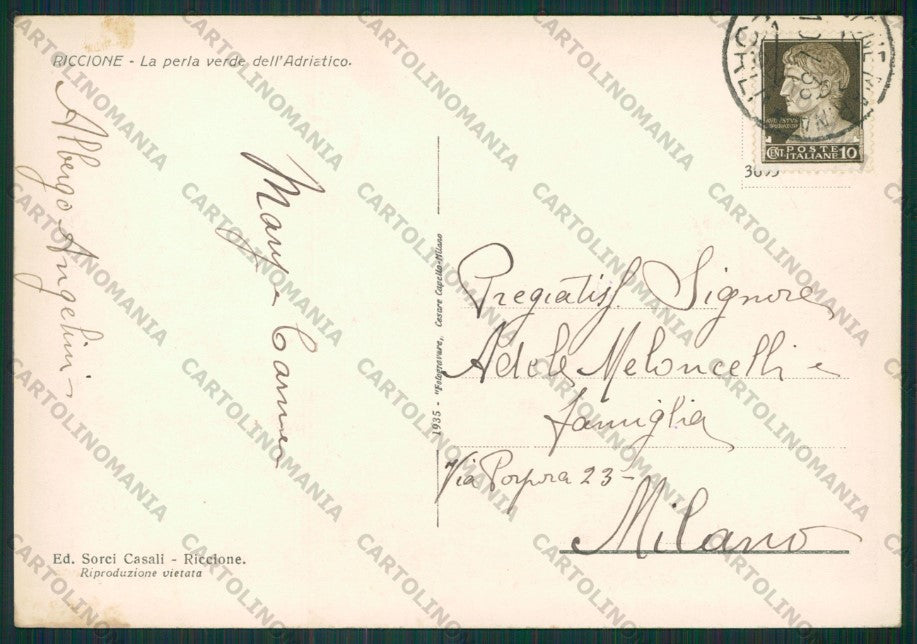 RICCIONE - La perla verde dell'Adriatico.
Albergo Angelini
Mary e
1935 - "Fotogravure, Cesare Capello-Milano
POSTE
CENT. ITALIANE 10
Pregiatiss. Signora
Adele Meloncelli e
famiglia
Via Porpora 23-
Milano
Ed. Sorci Casali - Riccione.
Riproduzione vietata
CARTOLINOMANIA